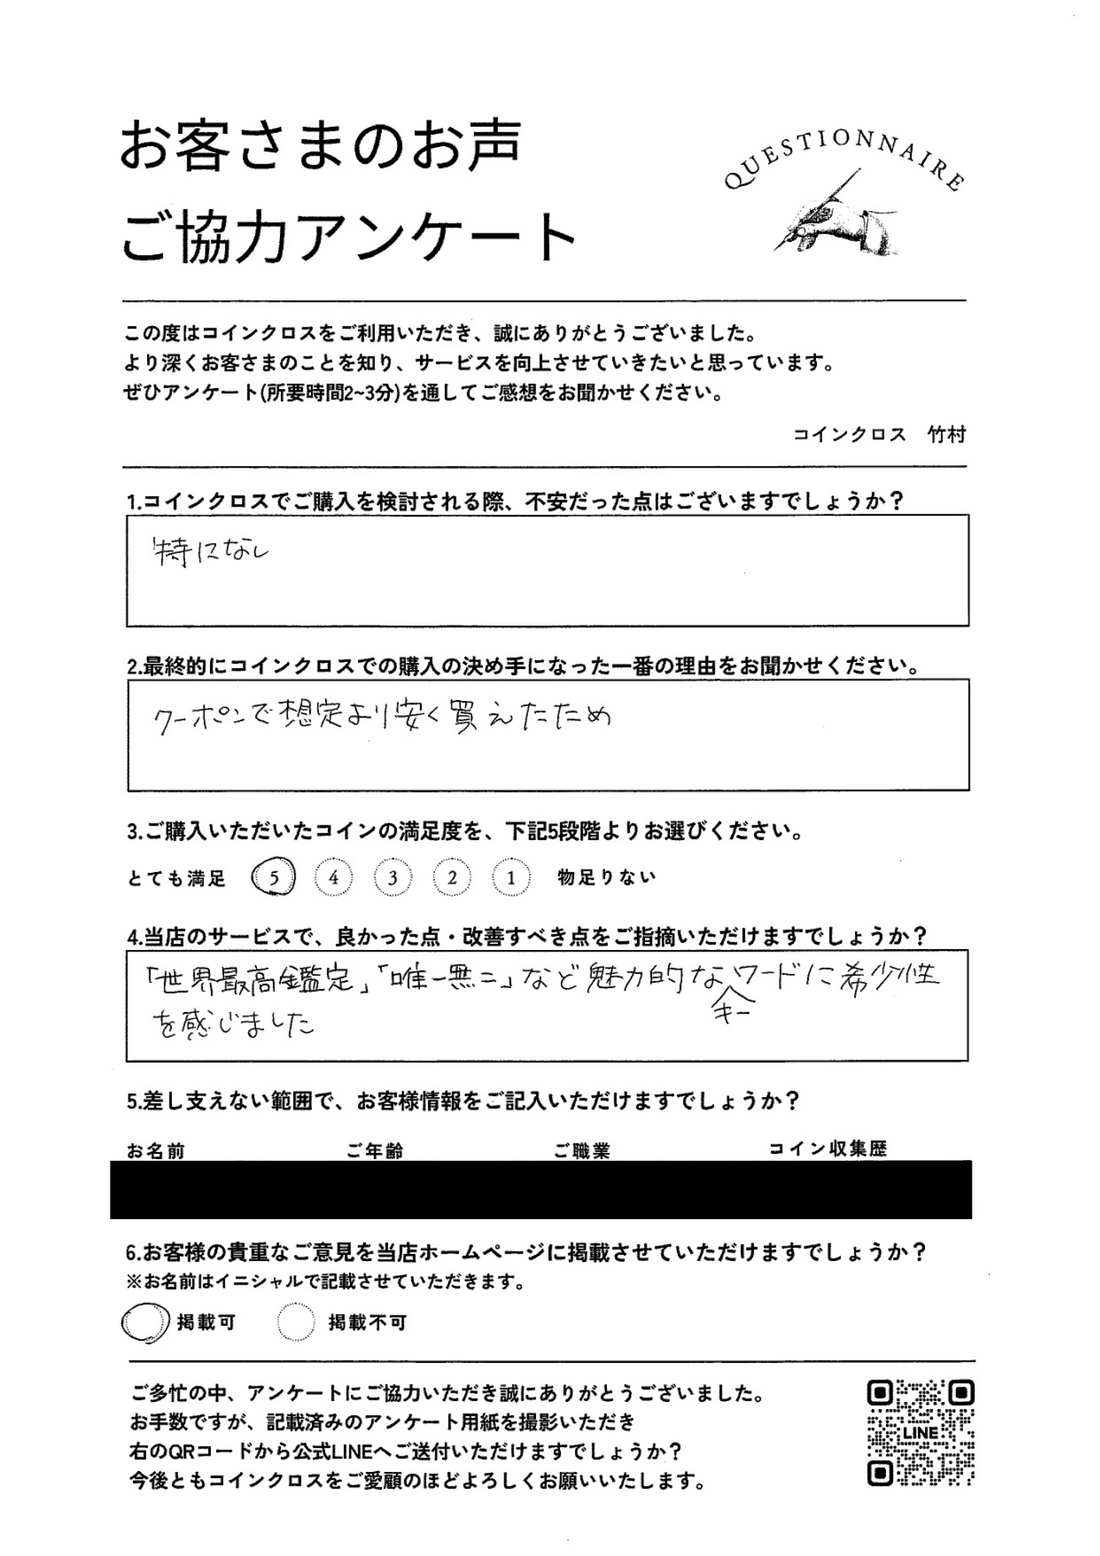 お客さまのお声
ご協力アンケート
QUESTIONNAIRE
この度はコインクロスをご利用いただき、誠にありがとうございました。
より深くお客さまのことを知り、サービスを向上させていきたいと思っています。
ぜひアンケート(所要時間2~3分)を通してご感想をお聞かせください。
コインクロス 竹村
1.コインクロスでご購入を検討される際、不安だった点はございますでしょうか？
特になし
2.最終的にコインクロスでの購入の決め手になった一番の理由をお聞かせください。
クーポンで想定より安く買えたため
3.ご購入いただいたコインの満足度を、下記5段階よりお選びください。
とても満足 5 4 3 2 1 物足りない
4.当店のサービスで、良かった点・改善すべき点をご指摘いただけますでしょうか？
「世界最高鑑定」「唯一無二」など魅力的なキーワードに希少性
を感じました
5.差し支えない範囲で、お客様情報をご記入いただけますでしょうか？
お名前 ご年齢 ご職業 コイン収集歴
6.お客様の貴重なご意見を当店ホームページに掲載させていただけますでしょうか？
※お名前はイニシャルで記載させていただきます。
掲載可 掲載不可
ご多忙の中、アンケートにご協力いただき誠にありがとうございました。
お手数ですが、記載済みのアンケート用紙を撮影いただき
右のQRコードから公式LINEへご送付いただけますでしょうか？
今後ともコインクロスをご愛顧のほどよろしくお願いいたします。
LINE